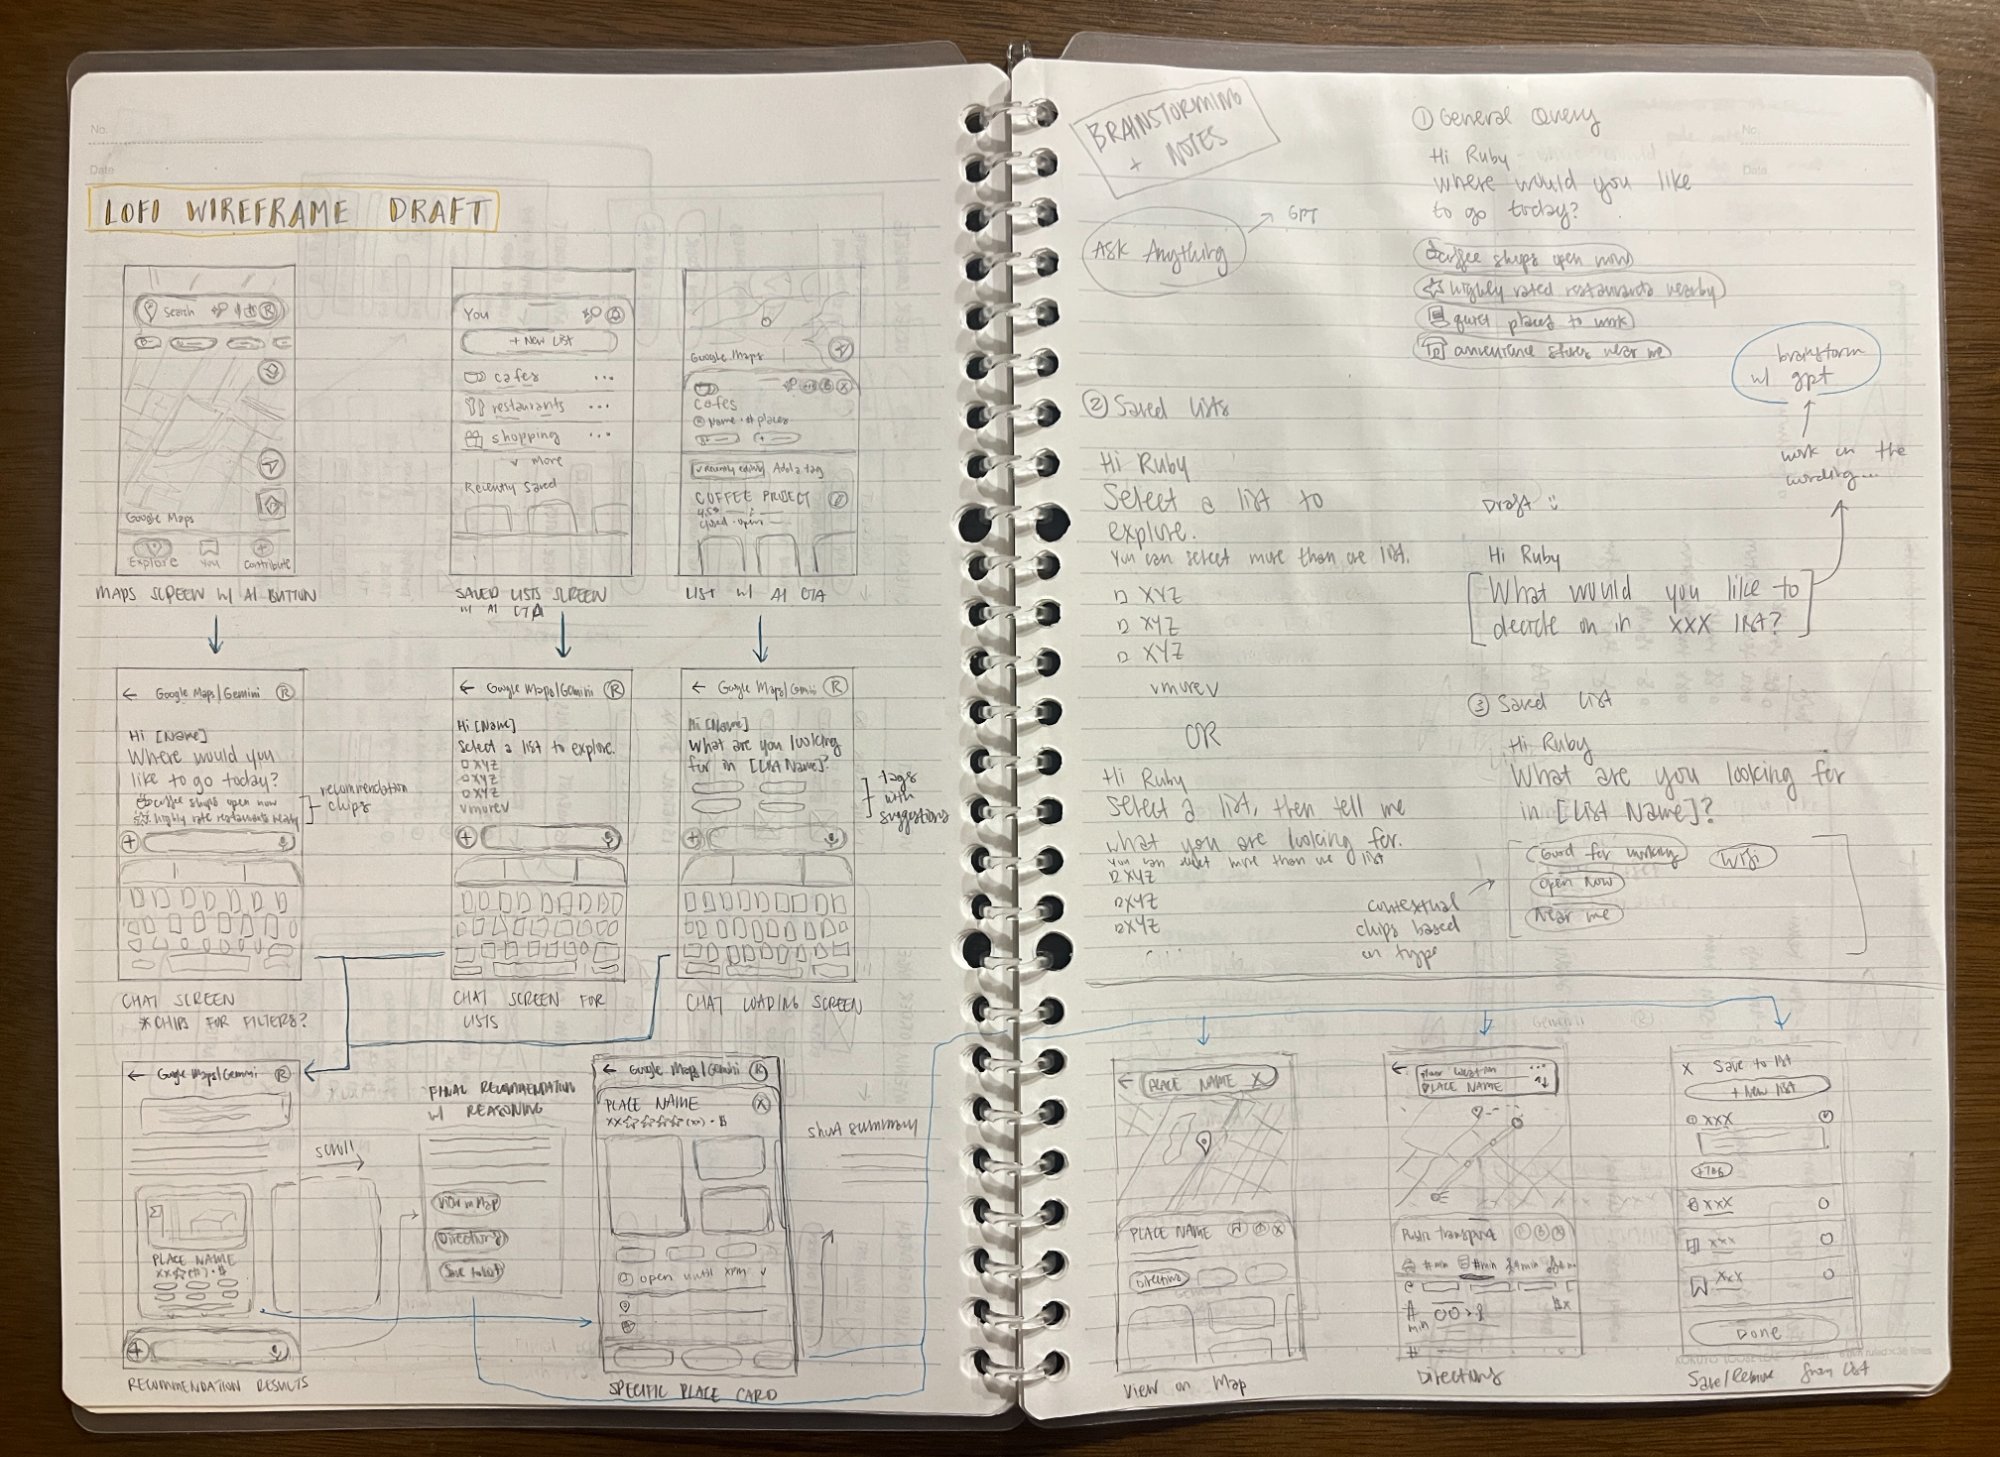 No.
Date
LOFI WIREFRAME DRAFT
Search
R
Google Maps
Explore
You
Contribute
MAPS SCREEN W/ AI BUTTON
You
+ New List
cafes
restaurants
shopping
v more
Recently Saved
SAVED LISTS SCREEN
W/ AI CTA
Google Maps
Cafes
Name · # places
Recently edited
Add a tag
COFFEE PROJECT
4.5
closed · open
LIST W/ AI CTA
← Google Maps/Gemini R
Hi [Name]
Where would you
like to go today?
coffee shops open now
highly rate restaurants nearby
recommendation
chips
CHAT SCREEN
*CHIPS FOR FILTERS?
← Google Maps/Gemini R
Hi [Name]
Select a list to explore.
XYZ
XYZ
XYZ
vmorev
CHAT SCREEN FOR
LISTS
← Google Maps/Gemini R
Hi [Name]
What are you looking
for in [List Name]?
tags
with
suggestions
CHAT LOADING SCREEN
← Google Maps/Gemini R
scroll
PLACE NAME
RECOMMENDATION RESULTS
FINAL RECOMMENDATION
W/ REASONING
View on Map
Directions
Save to list
← Google Maps/Gemini R
PLACE NAME X
open until xpm v
SPECIFIC PLACE CARD
short summary
BRAINSTORMING
+ NOTES
Ask Anything
GPT
① General Query
Hi Ruby
where would you like
to go today?
coffee shops open now
highly rated restaurants nearby
quiet places to work
convenience stores near me
No.
Date
brainstorm
w/ gpt
work on the
wording...
② Saved Lists
Hi Ruby
Select a list to
explore.
You can select more than one list.
XYZ
XYZ
XYZ
vmorev
OR
Hi Ruby
Select a list, then tell me
what you are looking for.
You can select more than one list
XYZ
XYZ
XYZ
Draft :
Hi Ruby
What would you like to
decide on in XXX list?
③ Saved List
Hi Ruby
What are you looking for
in [List Name]?
Good for working
Wifi
Open Now
Near me
contextual
chips based
on type
← PLACE NAME X
PLACE NAME
Directions
View on Map
PLACE NAME
Public transport
Directions
X Save to list
+ New List
XXX
XXX
XXX
XXX
Done
Save/Remove from List